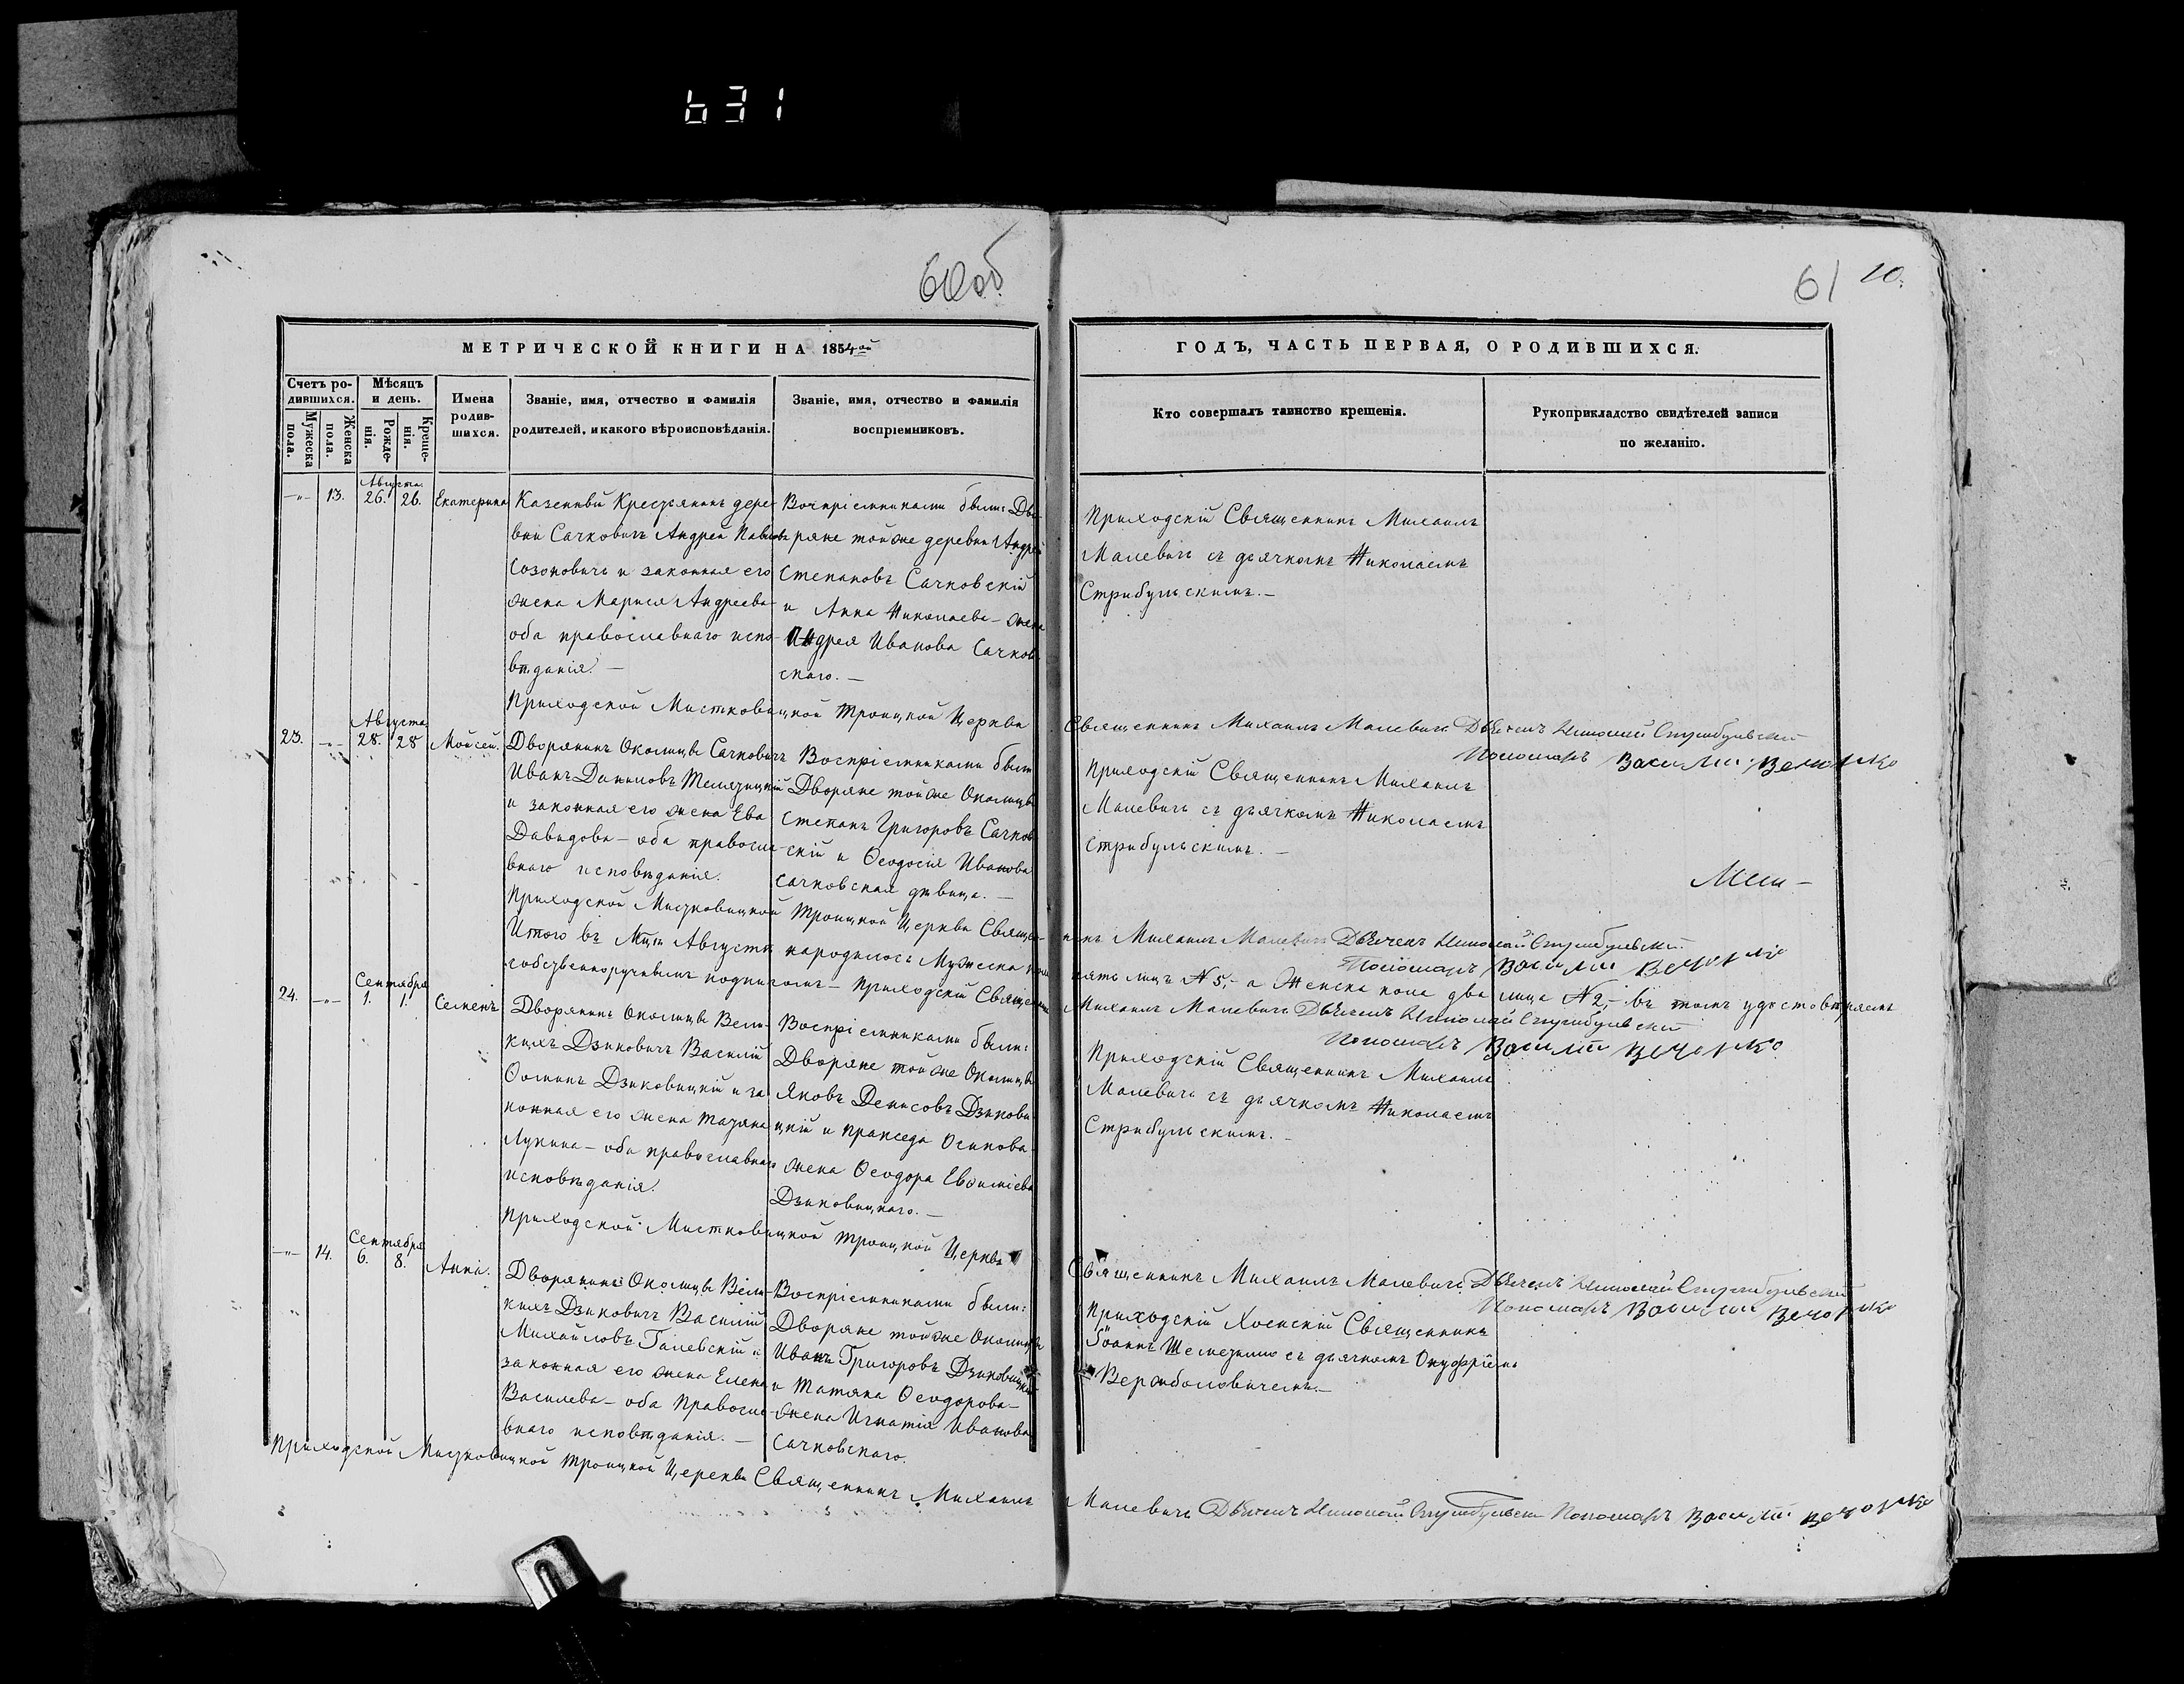 631
60об
61 10.
МЕТРИЧЕСКОЙ КНИГИ НА 1854ой
ГОДЪ, ЧАСТЬ ПЕРВАЯ, О РОДИВШИХСЯ.
Счетъ ро-
дившихся.
Мужеска
пола.
Женска
пола.
Мѣсяцъ
и день.
Рожде-
нія.
Креще-
нія.
Имена
родив-
шихся.
Званіе, имя, отчество и фамилія
родителей, и какого вѣроисповѣданія.
Званіе, имя, отчество и фамилія
воспріемниковъ.
Кто совершалъ таинство крещенія.
Рукоприкладство свидѣтелей записи
по желанію.
Августа
-"- 13. 26. 26. Екатерина
Казенный Крестьянинъ дере-
вни Сачковичъ Андрей Павловъ
Созоновичъ и законная его
жена Марися Андреева
оба православнаго испо-
вѣданія. —
Воспріемниками были: Дво-
ряне той же деревни Андрей
Степановъ Сачковскій
и Анна Николаева – жена
Андрея Иванова Сачков-
скаго. —
Приходскій Священникъ Михаилъ
Малевичъ съ дьячкомъ Николаемъ
Стрибульскимъ. —
Приходской Мистковицкой Троицкой Церкви
Священникъ Михаилъ Малевичъ Дьячекъ Николай Стрибульскій
Пономарь Василій Вечорко
Августа
23. -"- 28. 28 Мойсей.
Дворянинъ Околицы Сачковичъ
Иванъ Даниловъ Телятицкій
и законная его жена Ева
Давидова – оба правосла-
внаго исповѣданія.
Воспріемниками были
Дворяне той же Околицы
Степанъ Григоровъ Сачков-
скій и Ѳеодосія Иванова
Сачковская дѣвица. —
Приходскій Священникъ Михаилъ
Малевичъ съ дьячкомъ Николаемъ
Стрибульскимъ. —
Приходской Мистковицкой Троицкой Церкви Священ-
никъ Михаилъ Малевичъ Дьячекъ Николай Стрибульскій
Пономарь Василій Вечорко
Итого въ Мцѣ Августѣ народилось Мужеска пола
пять лицъ №5, – а Женска пола два лица №2, – въ томъ удостовѣряемъ
собственноручнымъ подписомъ – Приходскій Священникъ
Михаилъ Малевичъ Дьячекъ Николай Стрибульскій
Пономарь Василій Вечорко
Сентября
24. -"- 1. 1. Семенъ
Дворянинъ Околицы Вели-
кихъ Дзиковичъ Василій
Ѳоминъ Дзиковицкій и за-
конная его жена Татяна
Лукина – оба православнаго
исповѣданія.
Воспріемниками были:
Дворяне той же Околицы
Яковъ Денисовъ Дзикови-
цкій и Праксeда Осипова
жена Ѳеодора Евфиміева
Дзиковицкаго. —
Приходскій Священникъ Михаилъ
Малевичъ съ дьячкомъ Николаемъ
Стрибульскимъ. —
Приходской Мистковицкой Троицкой Церкви
Священникъ Михаилъ Малевичъ Дьячекъ Николай Стрибульскій
Пономарь Василій Вечорко
Сентября
-"- 14. 6. 8. Анна.
Дворянинъ Околицы Вели-
кихъ Дзиковичъ Василій
Михайловъ Галевскій и
законная его жена Елена
Василева – оба Правосла-
внаго исповѣданія. —
Воспріемниками были:
Дворяне той же Околицы
Иванъ Григоровъ Дзиковицкій
и Татяна Ѳеодорова –
жена Игнатія Иванова
Сачковскаго.
Приходскій Хоенскій Священникъ
Іоаннъ съ дьячкомъ Онуфріемъ
Вержболовичемъ. —
Приходской Мистковицкой Троицкой Церкви Священникъ Михаилъ
Малевичъ Дьячекъ Николай Стрибульскій Пономарь Василій Вечорко